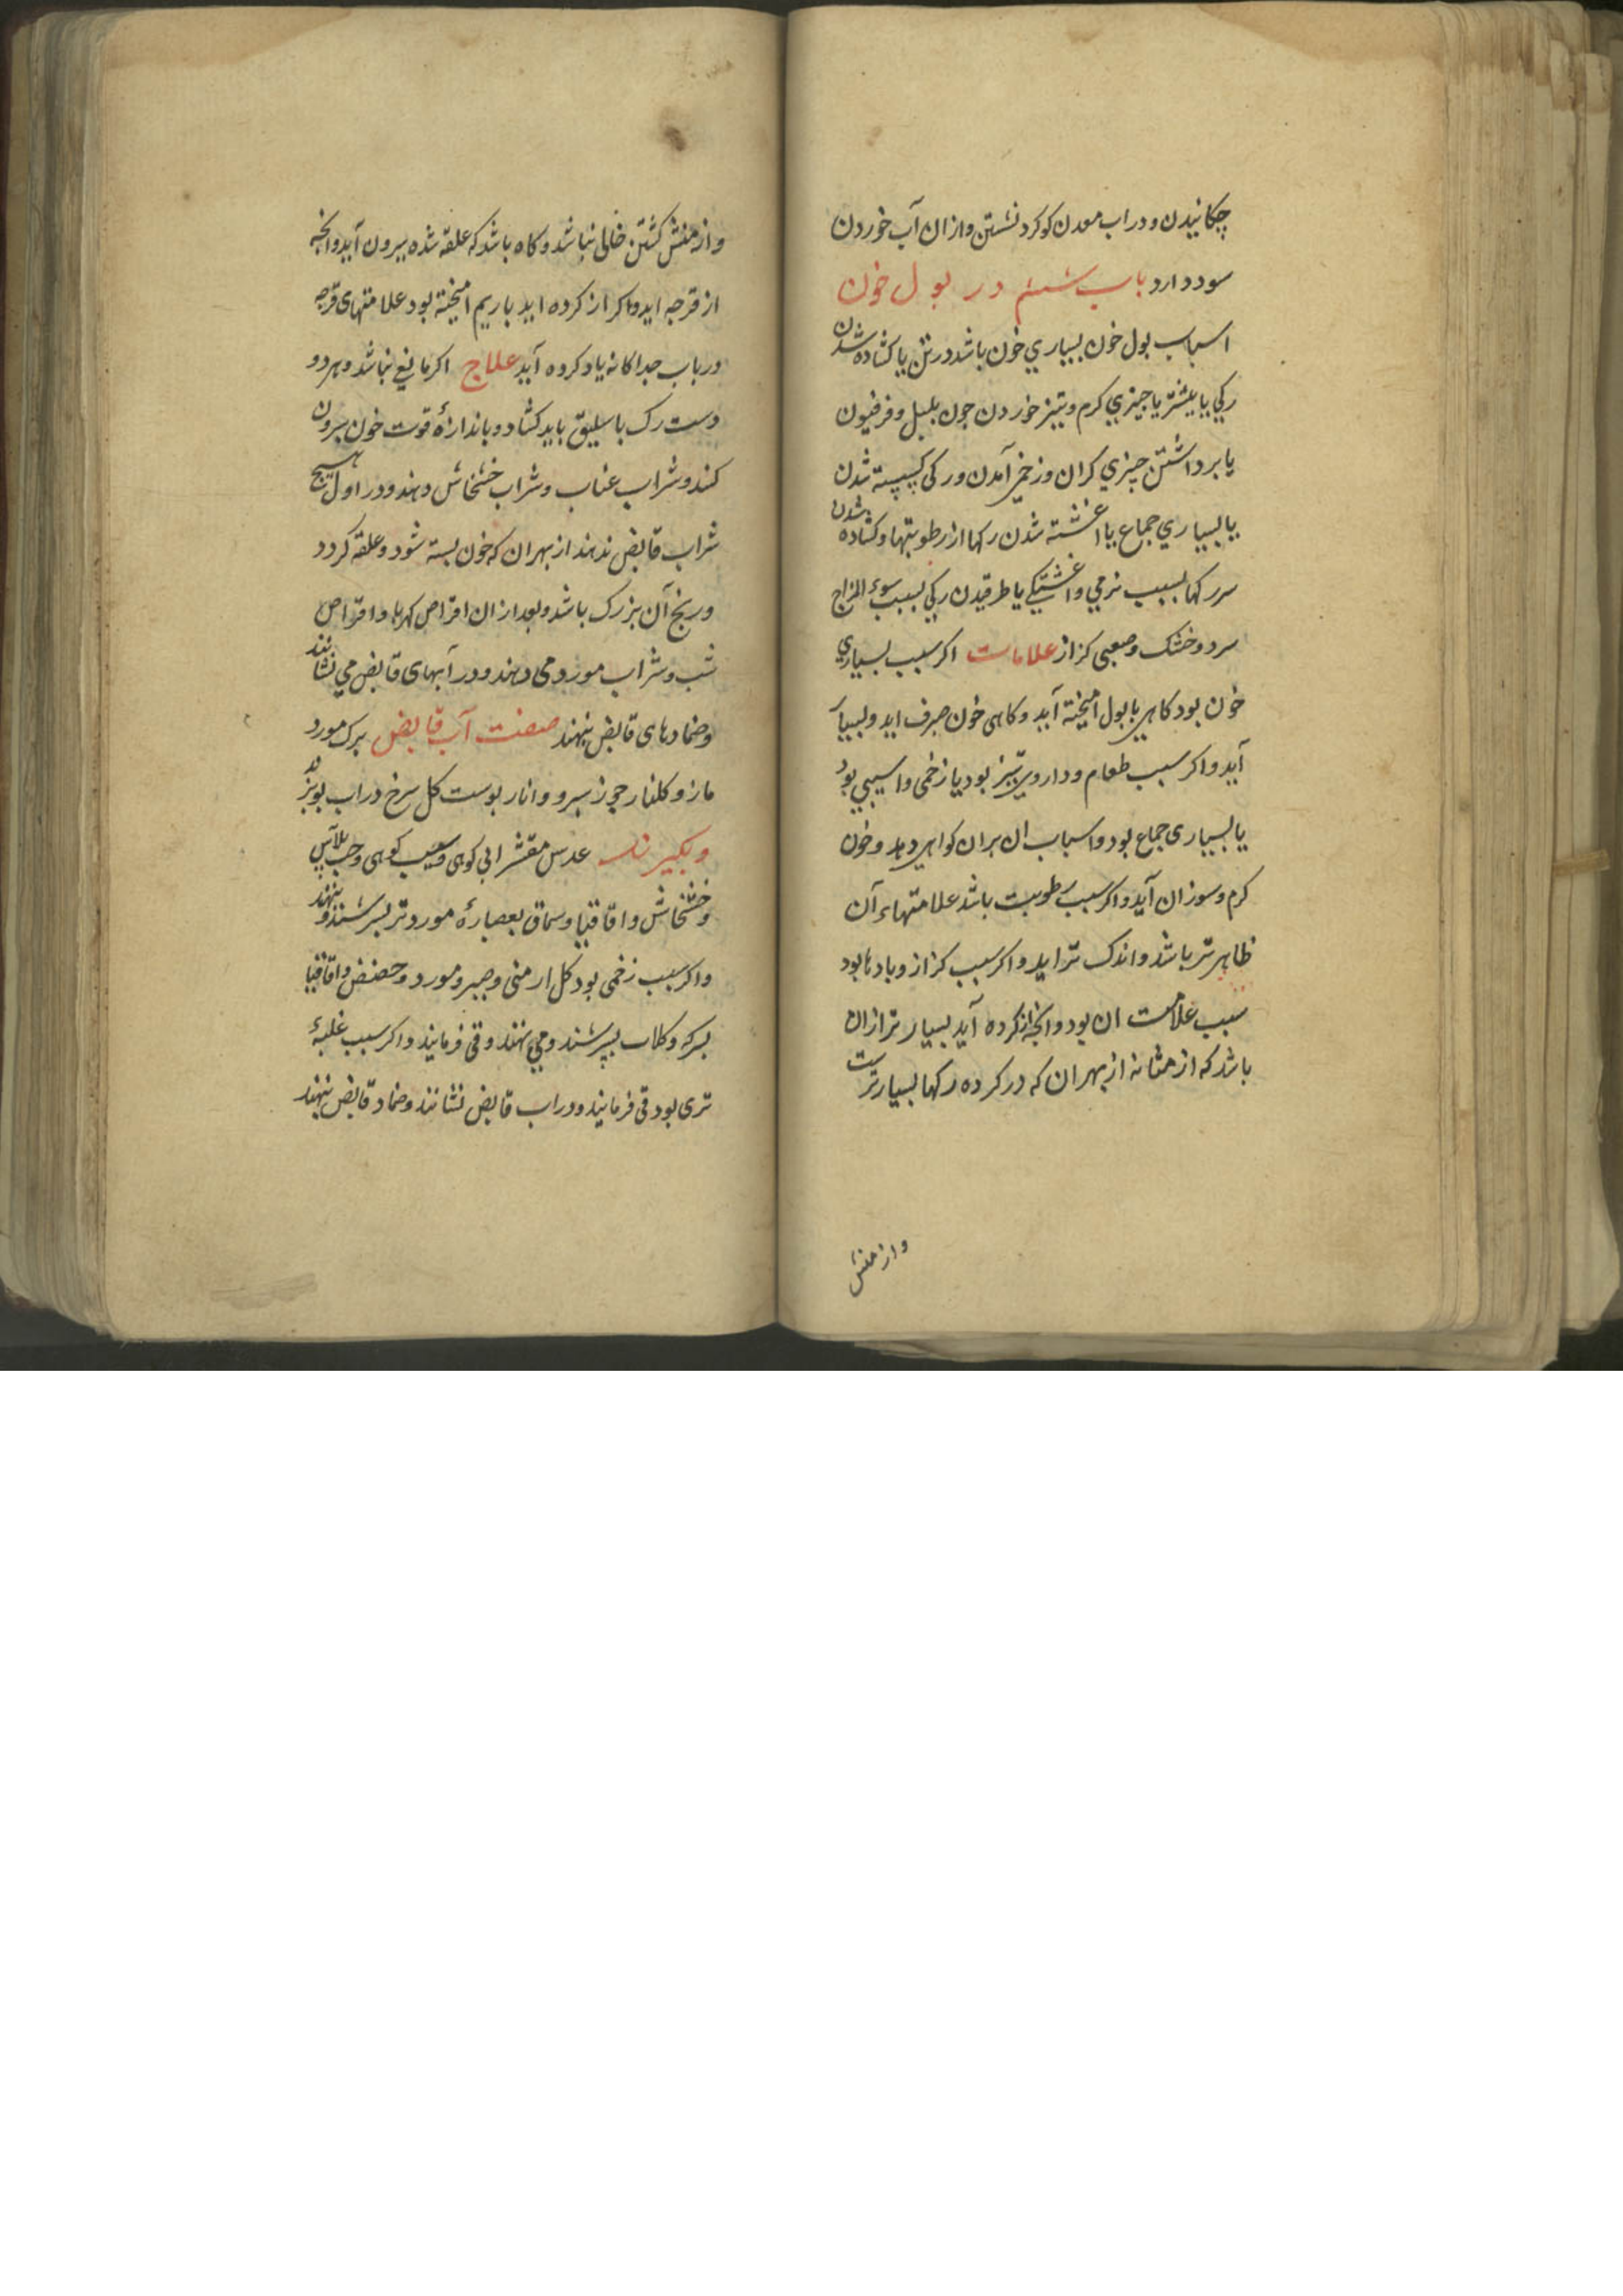 چکانیدن و دراب معدن کوکرد نشستن وازان آب خوردن
سود دارد باب ششم در بول خون
اسباب بول خون بسیاري خون باشد در تن یا کشاده شدن
رکي یا بیشتر یا چیزي کرم و تیز خوردن چون بلبل و فرفیون
یا برداشتن چیزي کران و زخمي آمدن و رکی کسسته شدن
یا بسیاري جماع یا اغشته شدن رکها از رطوبتها و کشاده شدن
سر رکها بسبب نرمي و اغشتکي یا طرقیدن رکي بسبب سوء المزاج
سرد و خشک و صعبی کزاز علامات اکر سبب بسیاري
خون بود کاهی با بول امیخته آید و کاهی خون صرف اید و بسیار
آید و اکر سبب طعام و داروی تیز بود یا زخمی و اسیبي بود
یا بسیاری جماع بود و اسباب ان بران کواهی دهد و خون
کرم و سوزان آید و اکر سبب رطوبت باشد علامتهاء آن
ظاهرتر باشد و اندک تر اید و اکر سبب کزاز و بادها بود
سبب علامت ان بود و انچه از کرده آید بسیار تر ازان
باشد که از مثانه از بهر ان که در کرده رکها بسیارترست
و از منش
و از منش کشتن خالی نباشد و کاه باشد که علقه شده بیرون آید و انچه
از قرحه اید و اکر از کرده اید با ریم امیخته بود علامتهای قرحه
در باب جداکانه یاد کرده آید علاج اکر مانعی نباشد و هر دو
دست رک باسلیق باید کشاد و باندازۀ قوت خون بیرون
کنند و شراب عناب و شراب خشخاش دهند و در اول هیچ
شراب قابض ندهند از بهر ان که خون بسته شود و علقه کردد
و رنج آن بزرک باشد و بعد ازان اقراص کهربا و اقراص
شب و شراب مورد می دهند و در آبهای قابض مي نشانند
و ضمادهای قابض بنهند صفت آب قابض برک مورد
مازو کلنار جوز سرو و انار بوست کل سرخ دراب بوبزند
و بکیرند عدس مقشر ابی کوهی و سیب کوهی و حب بلآس
و خشخاش و اقاقیا و سماق بعصارۀ مورد تر بسرشند و بنهند
و اکر سبب زخمی بود کل ارمنی و صبر و مورد و حضض و اقاقیا
بسرکه و کلاب بسرشند و می نهند و قی فرمایند و اکر سبب غلبۀ
تری بود قی فرمایند و دراب قابض نشانند و ضماد قابض بنهند